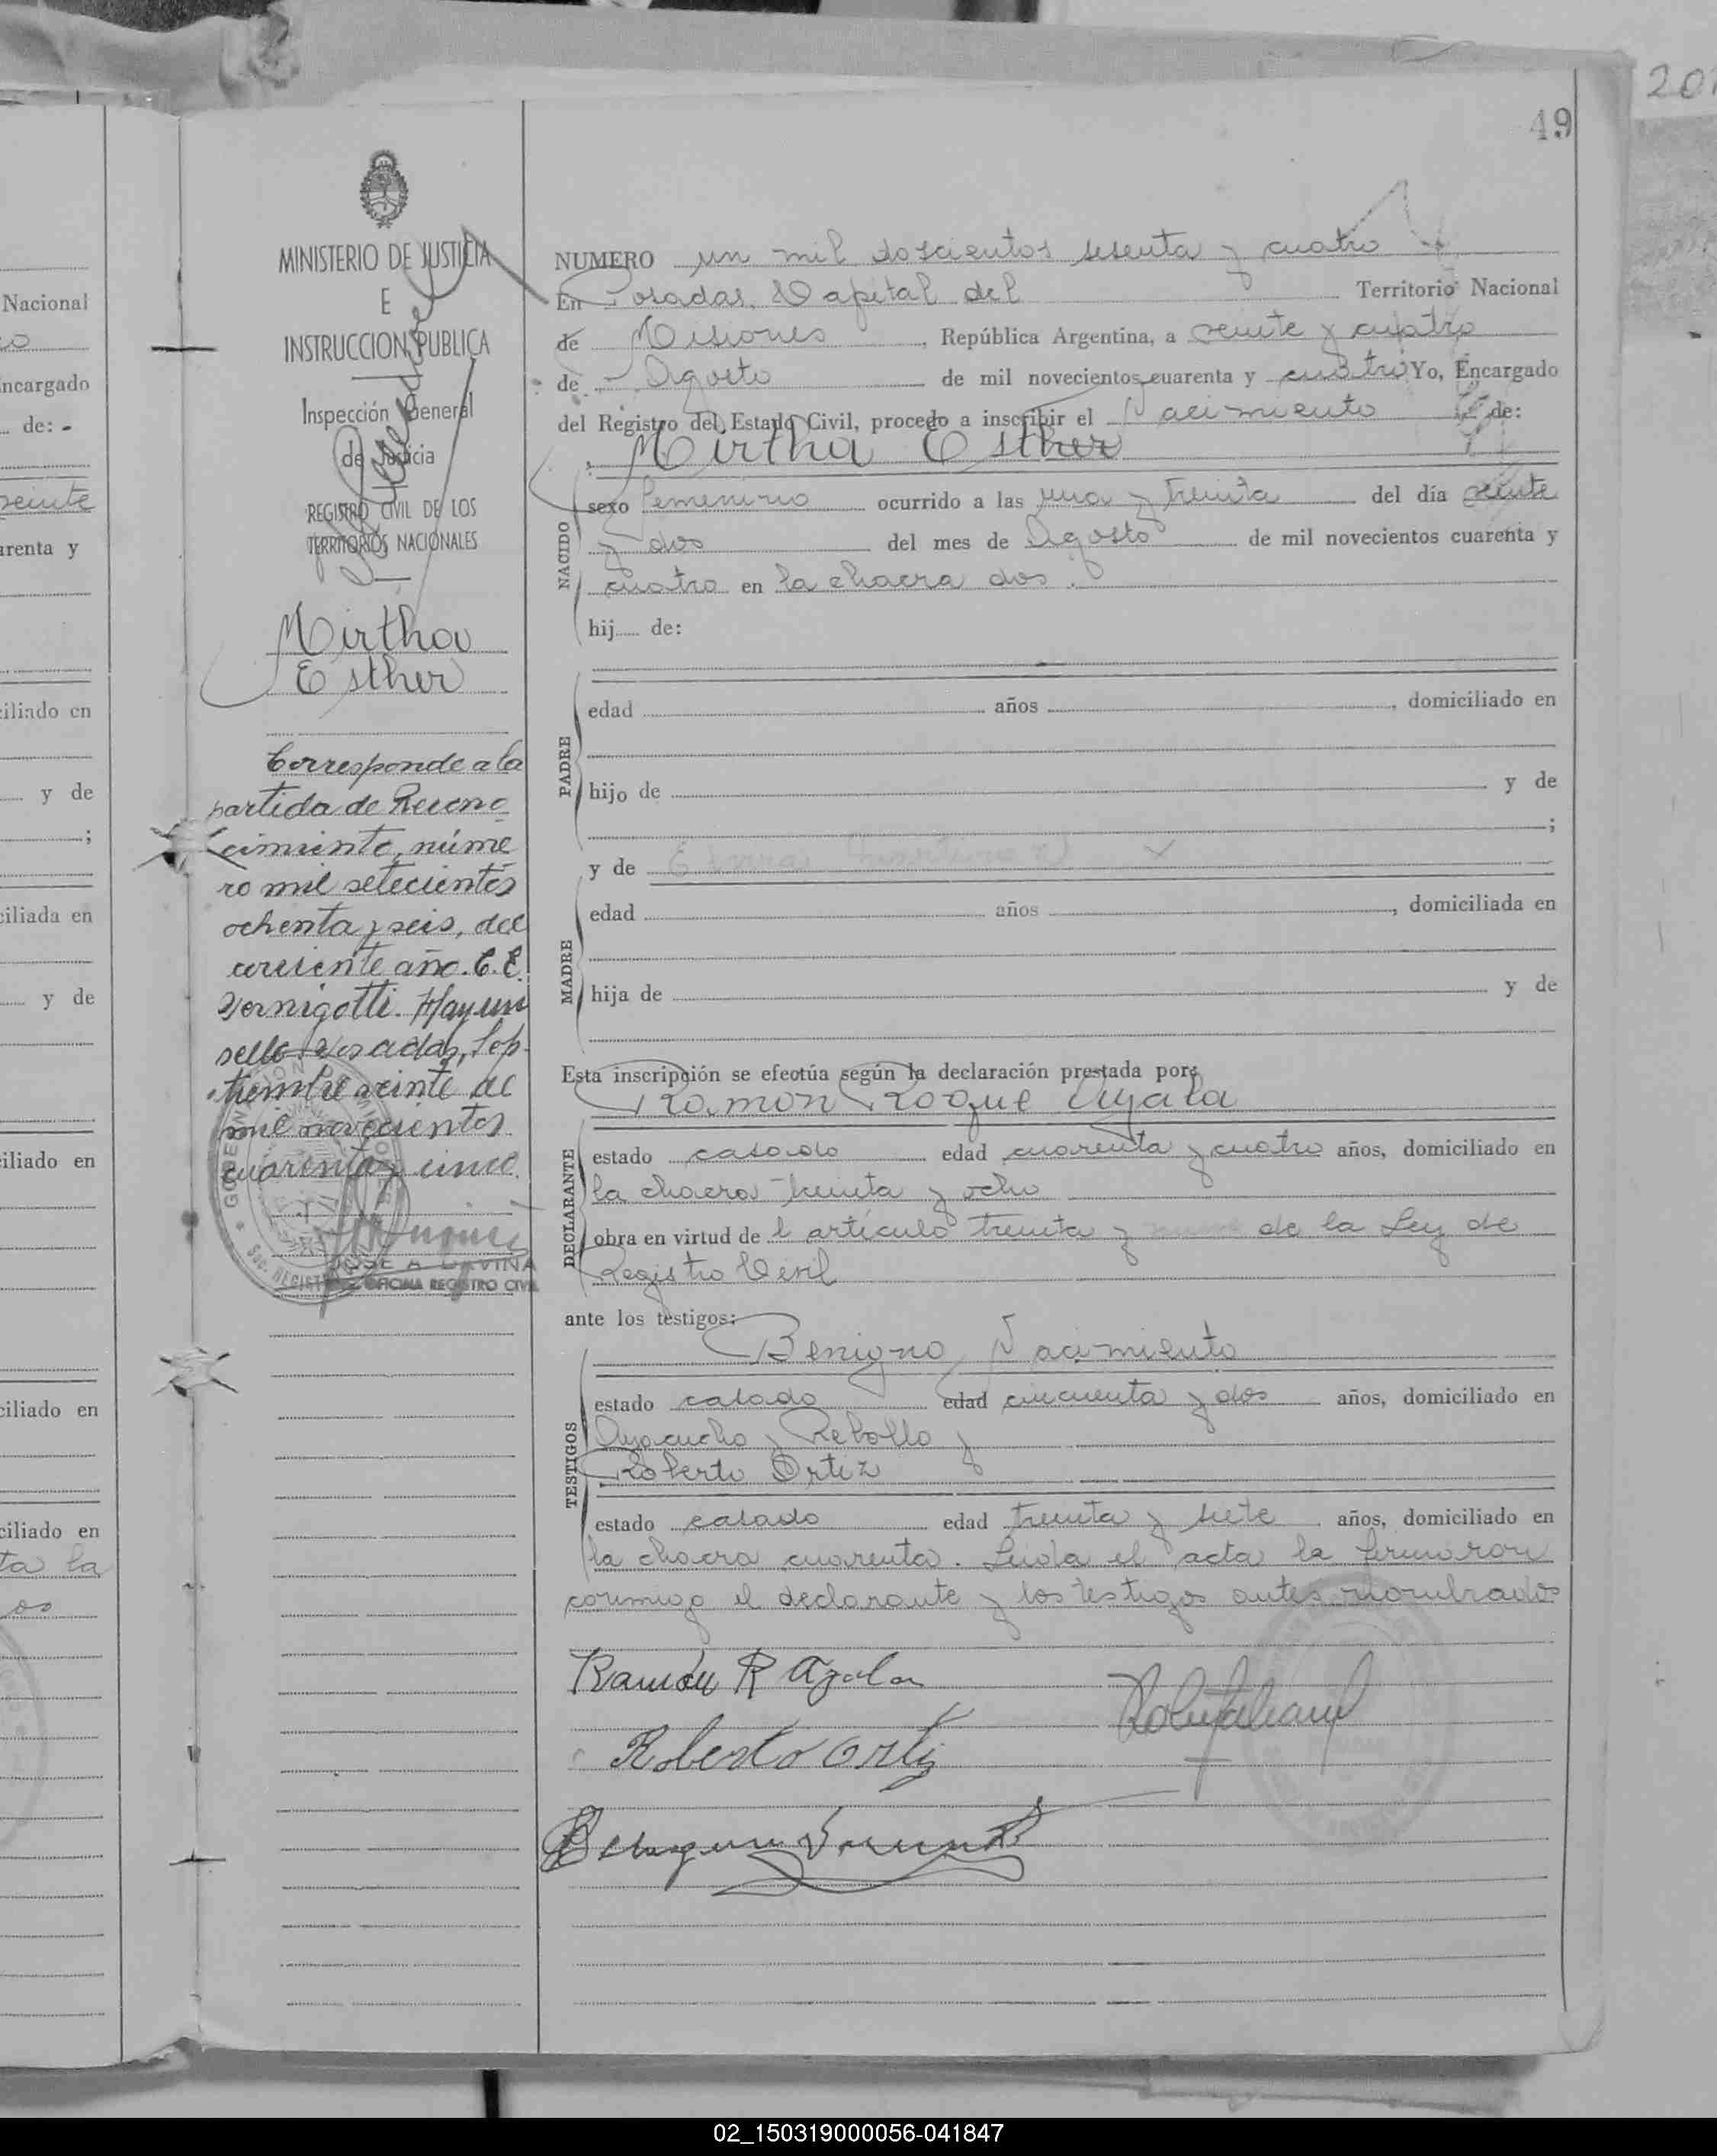 201
49
MINISTERIO DE JUSTICIA
E
INSTRUCCION PUBLICA
Inspección General
de Justicia
REGISTRO CIVIL DE LOS
TERRITORIOS NACIONALES
Mirtha
Esther
Corresponde a la
partida de Recono
cimiento, núme
ro mil setecientos
ochenta y seis, del
corriente año. C. E.
Vernigotti. Hay un
sello. Posadas, Sep
tiembre veinte de
mil novecientos
cuarenta y cinco.
JOSE A. DAVIÑA
OFICINA REGISTRO CIVIL
NUMERO un mil doscientos sesenta y cuatro
En Posadas, Capital del Territorio Nacional
de Misiones, República Argentina, a veinte y cuatro
de Agosto de mil novecientos cuarenta y cuatro Yo, Encargado
del Registro del Estado Civil, procedo a inscribir el Nacimiento de:
Mirtha Esther
NACIDO
sexo femenino ocurrido a las una y treinta del día veinte
y dos del mes de Agosto de mil novecientos cuarenta y
cuatro en la chacra dos.
hij de:
PADRE
edad años, domiciliado en
hijo de y de
;
y de
MADRE
edad años, domiciliada en
hija de y de
Esta inscripción se efectúa según la declaración prestada por:
Ramón Roque Ayala
DECLARANTE
estado casado edad cuarenta y cuatro años, domiciliado en
la chacra treinta y ocho
obra en virtud de l artículo treinta y de la Ley de
Registro Civil
ante los testigos:
Benigno Nacimiento
TESTIGOS
estado casado edad cincuenta y dos años, domiciliado en
Ayacucho y Rebollo y
Roberto Ortiz
estado casado edad treinta y siete años, domiciliado en
la chacra cuarenta. Leida el acta la firmaron
conmigo el declarante y los testigos antes nombrados
Ramón R Ayala
Roberto Ortiz
02_150319000056-041847